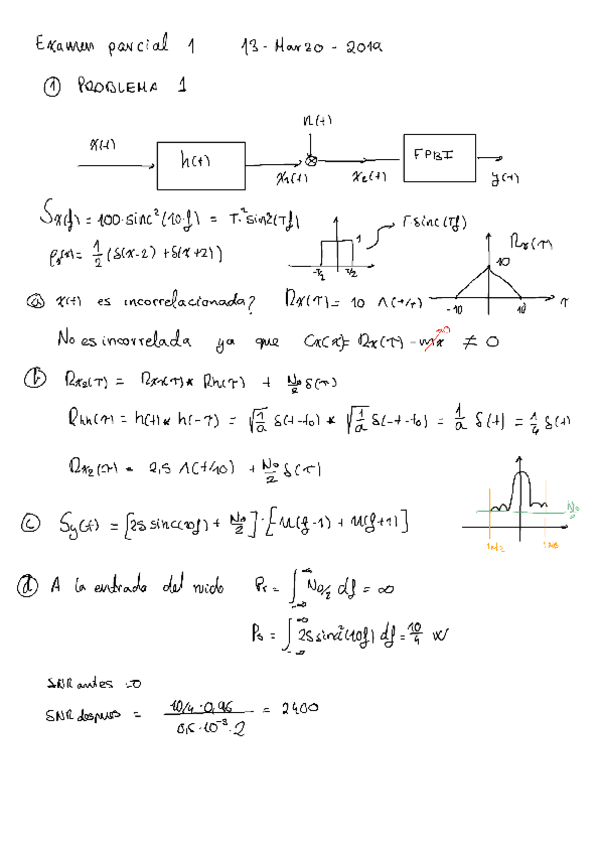 Examen parcial 1 13-Marzo-2019
① PROBLEMA 1
n(t)
x(t) h(t) x₁(t) ⊗ x₂(t) FPBI y(t)
Sx(f) = 100·sinc²(10·f) = T²·sinc²(Tf)
1 T sinc(Tf)
-T/2 T/2
Rx(τ)
10
-10 10 τ
ⓐ x(t) es incorrelacionada? Rx(τ) = 10 Λ(τ/τ)
No es incorrelada ya que Cx(x) = Rx(τ) - mx ≠ 0
ⓑ Rx₂(τ) = Rxx(τ)* Rh(τ) + No/2 δ(τ)
Rhh(τ) = h(t)* h(-τ) = √(1/a) δ(t-to) * √(1/a) δ(-t-to) = 1/a δ(t) = 1/4 δ(t)
Rx₂(τ) = 2,5 Λ(τ/10) + No/2 δ(τ)
ⓒ Sy(t) = [25 sinc(10f) + No/2]·[-u(f-1) + u(f+1)]
ⓓ A la entrada del ruido Pr = ∫ No/2 df = ∞
Ps = ∫ 25 sinc²(10f) df = 10/4 W
SNR antes = 0
SNR despues = 10/4·0,96 / 0,5·10⁻³·2 = 2400